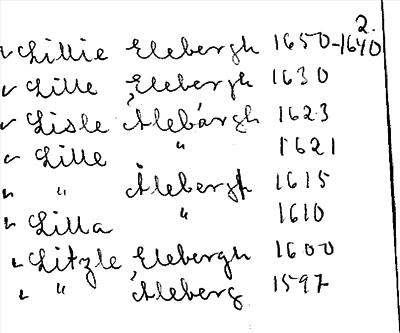 2.
✓ Lillie Elebergh 1650-1640
✓ Lille Elebergh 1630
✓ Lisle Alebargh 1623
✓ Lille " 1621
✓ " Alebergh 1615
✓ Lilla " 1610
✓ Litzle Elebergh 1600
✓ " Aleberg 1597